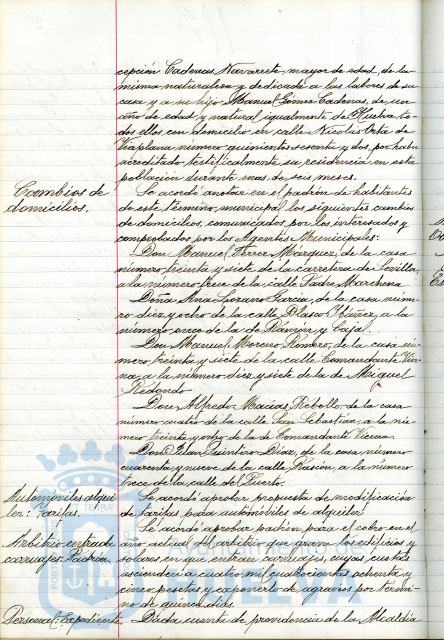 cepción Cadenas Navarrete, mayor de edad, de la
misma naturaleza y dedicada a las labores de su
casa y a su hijo Manuel Gómez Cadenas, de un
año de edad y natural igualmente de Huelva to-
dos ellos con domicilio en calle Nicolás Orta de
Viaplana número quinientos sesenta y dos, por haber
acreditado testificalmente su residencia en esta
población durante mas de seis meses.
Cambios de
domicilios.
Se acordó anotar en el padrón de habitantes
de este término municipal los siguientes cambios
de domicilios, comunicados por los interesados y
comprobados por los Agentes Municipales:
Don Manuel Ferrer Márquez, de la casa
número treinta y siete de la carretera de Sevilla,
a la número trece de la calle Padre Marchena
Doña Ana Lozano García, de la casa núme-
ro diez y ocho de la calle Blasco Ibáñez, a la
número once de la de Ramón y Cajal.
Don Manuel Moreno Romero, de la casa nú-
mero treinta y siete de la calle Comandante Vice-
na, a la número diez y siete de la de Miguel
Redondo
Don Alfredo Macías Rebollo, de la casa
número cuatro de la calle San Sebastián, a la nú-
mero treinta y ocho de la de Comandante Vicena.
Don Juan Quintero Díaz, de la casa número
cuarenta y nueve de la calle Rascón, a la número
trece de la calle del Puerto.
Automóviles alqui-
ler: Tarifas.
Se acordó aprobar propuesta de modificación
de tarifas para automóviles de alquiler.
Arbitrio entrada
carruajes: Padrón.
Se acordó aprobar padrón para el cobro en el
año actual del arbitrio que grava los edificios y
solares en que entran carruajes, cuyas cuotas
ascienden a cuatro mil cuatrocientas ochenta y
cinco pesetas y exponerlo de agravios por térmi-
no de quince días.
Personal: Expediente.
Dada cuenta de providencia de la Alcaldía
Ayuntamiento de
HUELVA